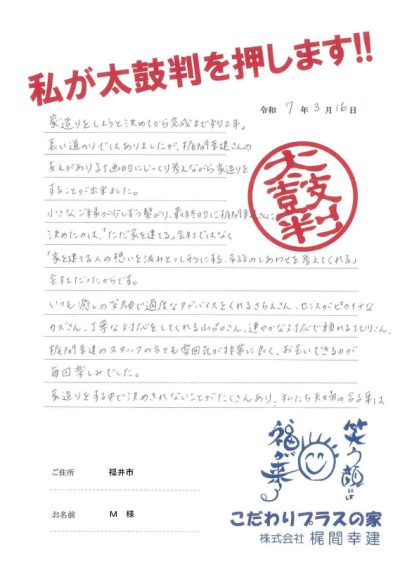 私が太鼓判を押します!!
令和 7 年 3 月 16 日
家造りをしようと決めてから完成まで約2年。
長い道のりではありましたが、梶間幸建さんの
支えがあり計画的にじっくり考えながら家造りを
することが出来ました。
小さなご縁が
太鼓判
決めたのは、「ただ家を建てる」会社ではなく
「家を建てる人の想いを汲みとって形にする、家族のしあわせを考えてくれる」
会社だったからです。
いつも癒しの笑顔で適度なアドバイスをくれるさちえさん、センスがピカイチな
カズさん、丁寧な対応をしてくれる山口さん、速やかな対応で頼れるひとりさん、
梶間幸建のスタッフの方々も雰囲気が非常に良く、お会いできるのが
毎回楽しみでした。
家造りをする中で決めきれないことがたくさんあり、私たち夫婦の
笑う顔には
福が来る
ご住所 福井市
お名前 M 様
こだわりプラスの家
株式会社 梶間幸建